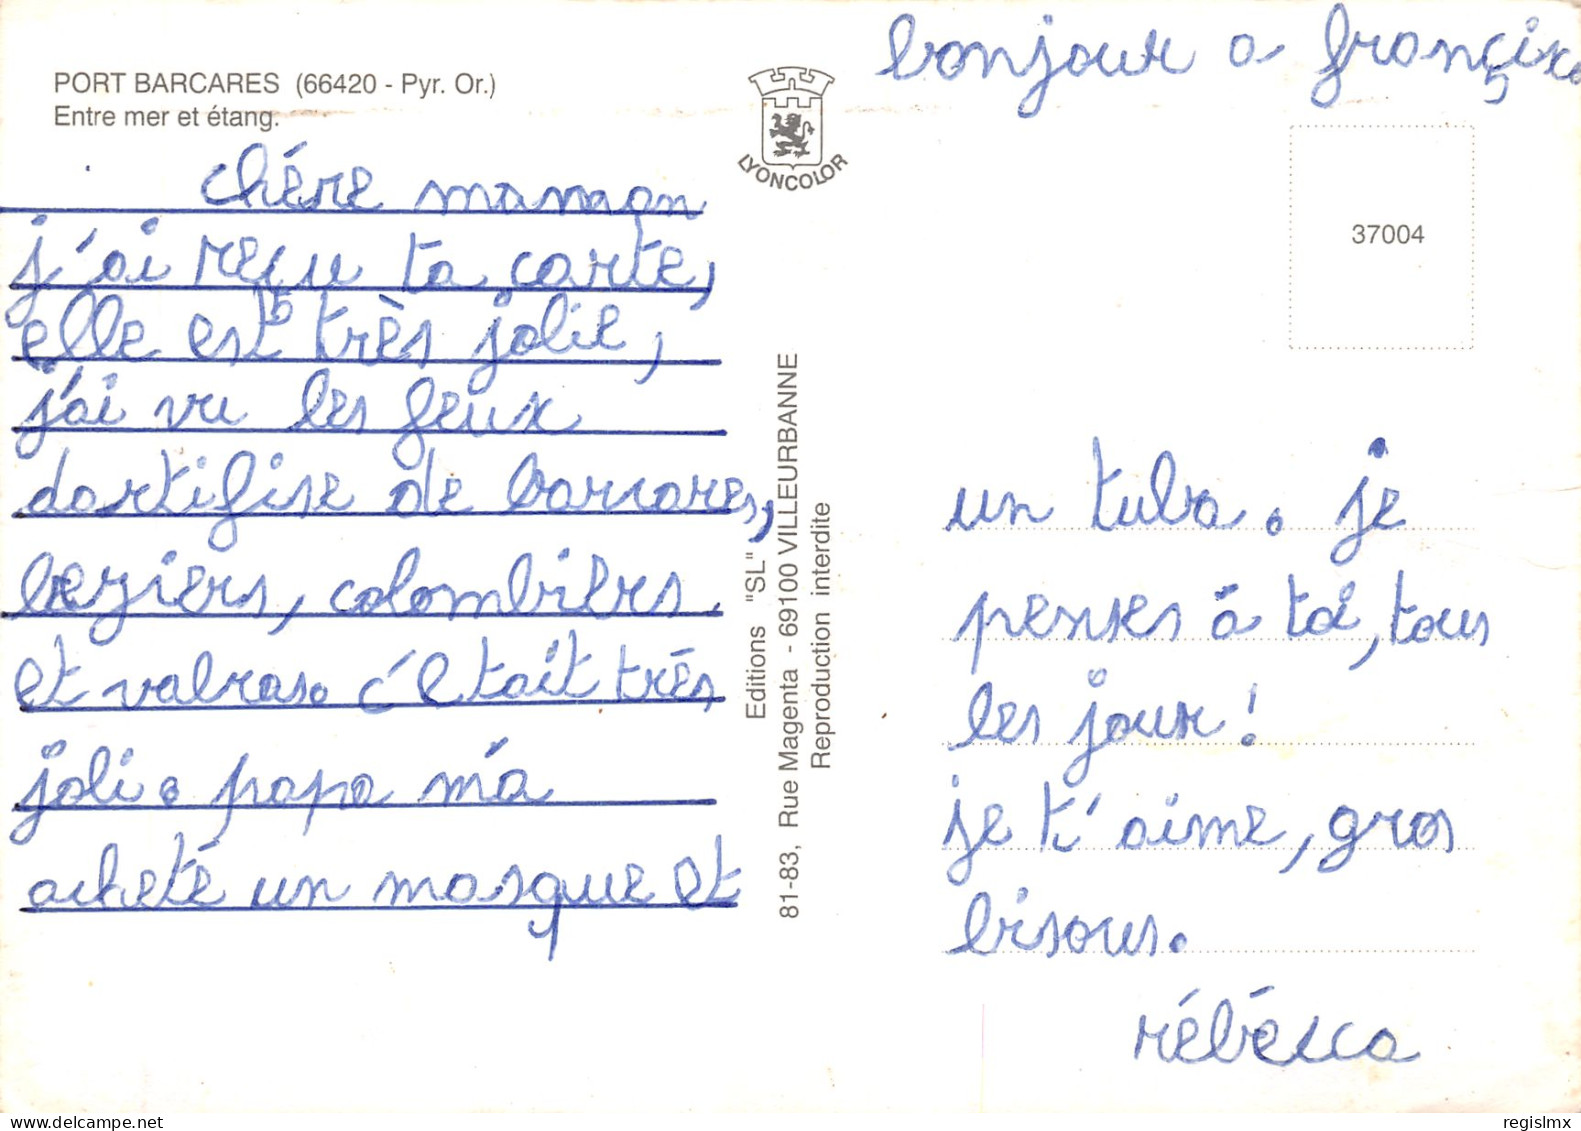 PORT BARCARES (66420 - Pyr. Or.)
Entre mer et étang.
chére maman
j'ai reçu ta carte,
elle est très jolie,
j'ai vu les feux
dortifise de barcares,
beziers, colombiers
et valras. c'était trés
joli. papa m'a
acheté un masque et
LYONCOLOR
Editions "SL"
81-83, Rue Magenta - 69100 VILLEURBANNE
Reproduction interdite
bonjour a
37004
un tuba. je
penses á toi, tous
les jour!
je t'aime, gros
bisous.
rébéca
regislmx